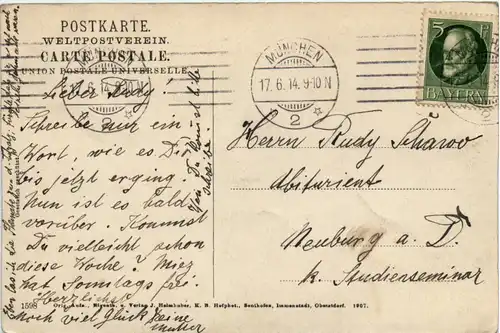 POSTKARTE.
WELTPOSTVEREIN.
CARTE POSTALE.
UNION POSTALE UNIVERSELLE.
MÜNCHEN
17. 6. 14. 9-10 N
2
5 PF
BAYERN
Lieber Rudy!
Schreibe nur ein
Wort, wie es Dir
bis jetzt erging.
Nun ist es bald
vorüber. Kommst
Du vielleicht schon
diese Woche? Miez
hat Sonntags frei.
Herzlichst
Noch viel Glück! Deine
Mutter
Herrn Rudy
Abiturient
Neuburg a. D.
k. Studienseminar
1598 Orig.-Aufn., Eigent. u. Verlag J. Heimhuber, K. B. Hofphot., Sonthofen, Immenstadt, Oberstdorf. 1907.